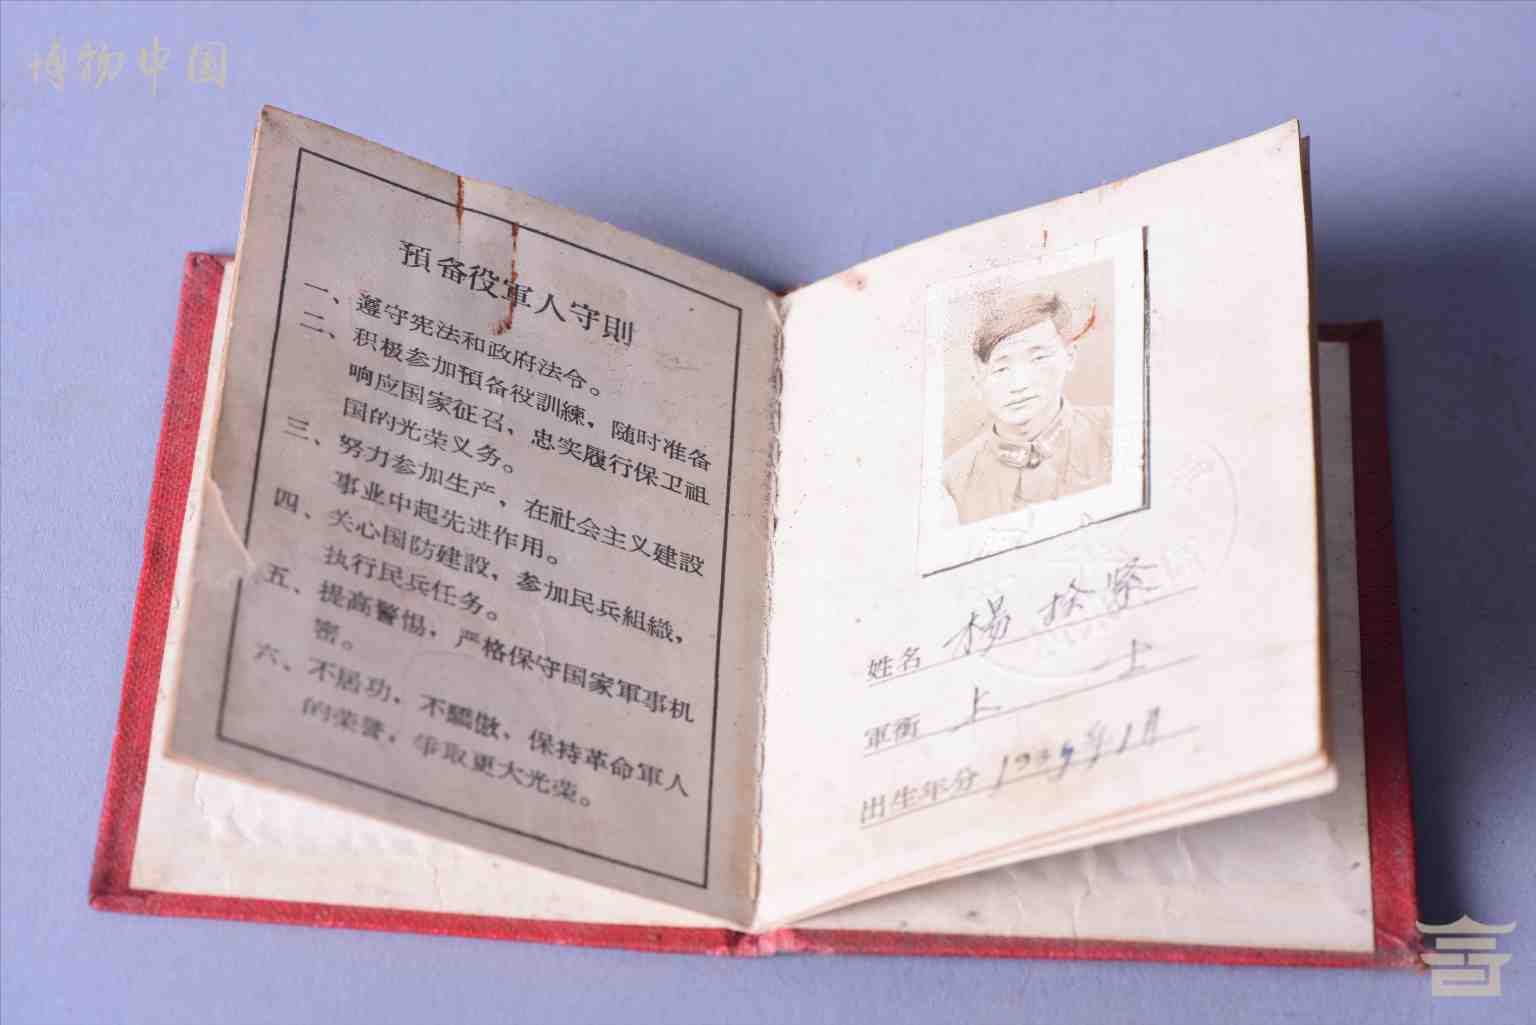 博物中国
預备役軍人守則
一、遵守宪法和政府法令。
二、积极参加預备役訓練，随时准备
响应国家征召，忠实履行保卫祖
国的光荣义务。
三、努力参加生产，在社会主义建設
事业中起先进作用。
四、关心国防建設，参加民兵組織，
执行民兵任务。
五、提高警惕，严格保守国家軍事机
密。
六、不居功，不驕傲，保持革命軍人
的荣誉，争取更大光荣。
姓名 楊 拴紧
軍衔 上 士
出生年分 1935年1月